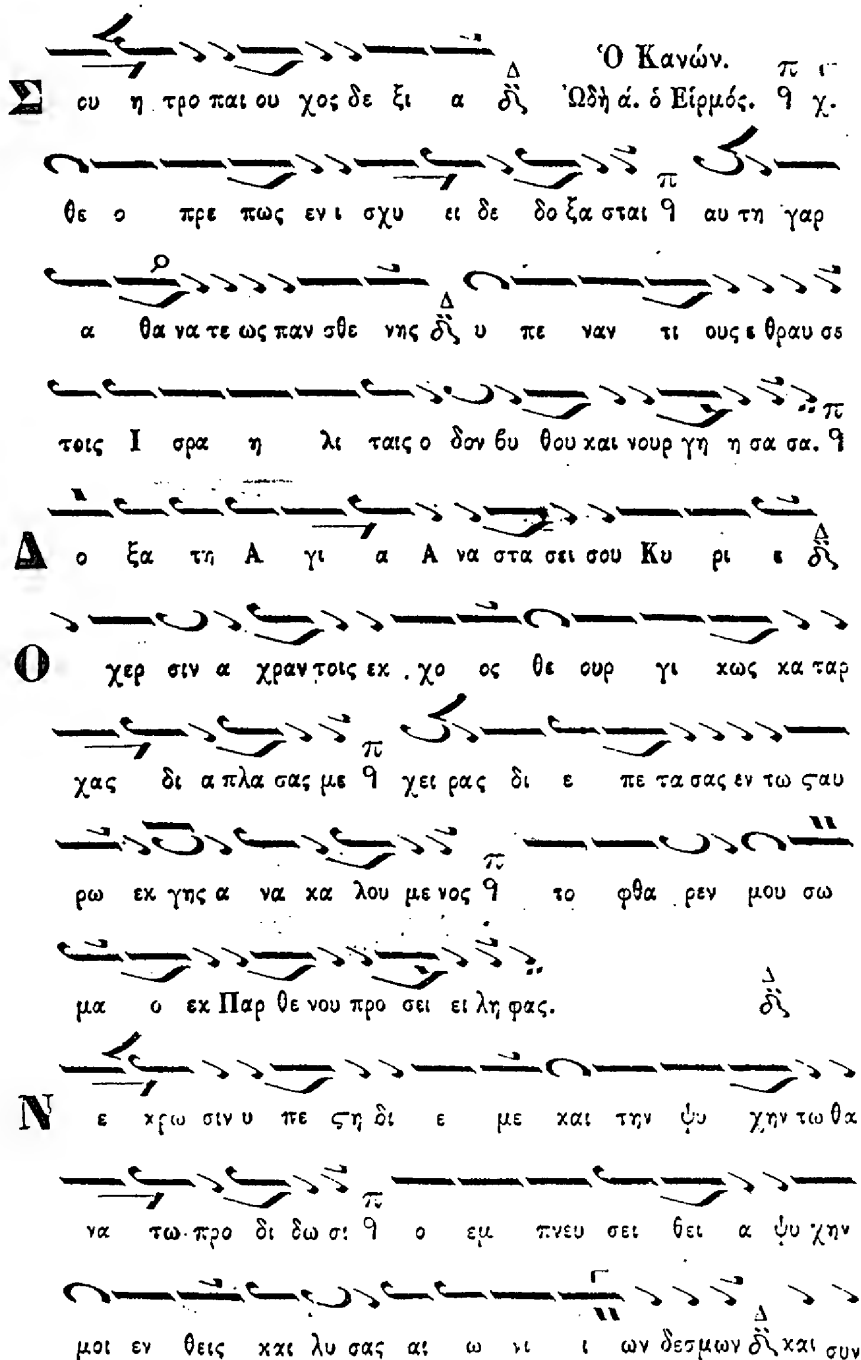 Ὁ Κανών.
Σ ου η τρο παι ου χος δε ξι α Δ Ὠδὴ ά. ὁ Εἱρμός. π χ.
θε ο πρε πως εν ι σχυ ει δε δο ξα σται π αυ τη γαρ
α θα να τε ως παν σθε νης Δ υ πε ναν τι ους ε θραυ σε
τοις Ι σρα η λι ταις ο δον βυ θου και νουρ γη η σα σα. π
Δ ο ξα τη Α γι α Α να στα σει σου Κυ ρι ε Δ
Ο χερ σιν α χραν τοις εκ χο ος θε ουρ γι κως κα ταρ
χας δι α πλα σας με π χει ρας δι ε πε τα σας εν τω ϛαυ
ρω εκ γης α να κα λου με νος π το φθα ρεν μου σω
μα ο εκ Παρ θε νου προ σει ει λη φας. Δ
Ν ε κρω σιν υ πε ϛη δι ε με και την ψυ χην τω θα
να τω προ δι δω σι π ο εμ πνευ σει θει α ψυ χην
μοι εν θεις και λυ σας αι ω νι ι ων δεσμων Δ και συν